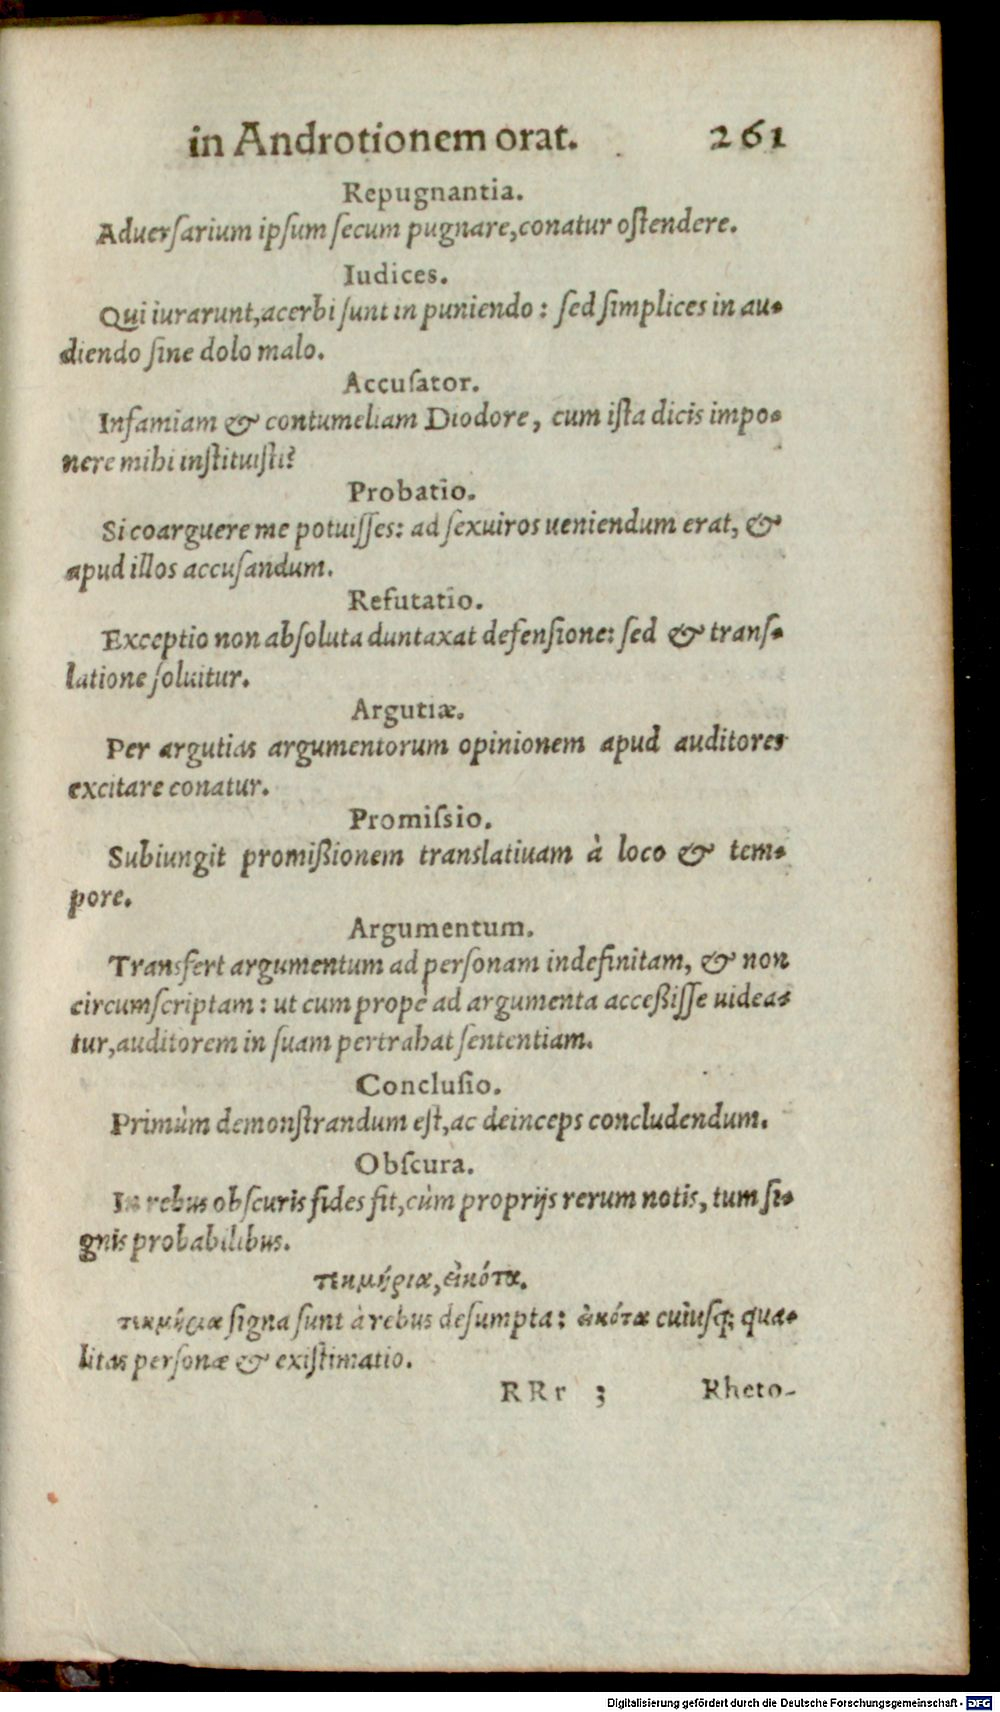 in Androtionem orat. 261
Repugnantia.
Aduerſarium ipſum ſecum pugnare,conatur oſtendere.
Iudices.
Qui iurarunt,acerbi ſunt in puniendo: ſed ſimplices in au-
diendo ſine dolo malo.
Accuſator.
Infamiam & contumeliam Diodore, cum iſta dicis impo-
nere mihi inſtituiſti?
Probatio.
Si coarguere me potuiſſes: ad ſexuiros ueniendum erat, &
apud illos accuſandum.
Refutatio.
Exceptio non abſoluta duntaxat defenſione: ſed & tranſ-
latione ſoluitur.
Argutiæ.
Per argutias argumentorum opinionem apud auditores
excitare conatur.
Promiſsio.
Subiungit promißionem translatiuam à loco & tem-
pore.
Argumentum.
Transfert argumentum ad perſonam indefinitam, & non
circumſcriptam: ut cum propè ad argumenta acceßiſſe uidea-
tur,auditorem in ſuam pertrahat ſententiam.
Concluſio.
Primùm demonſtrandum eſt,ac deinceps concludendum.
Obſcura.
In rebus obſcuris fides fit,cùm proprijs rerum notis, tum ſi-
gnis probabilibus.
τεκμήρια,εἰκότα.
τεκμήρια ſigna ſunt à rebus deſumpta: εἰκότα cuiuſq; qua-
litas perſonæ & exiſtimatio.
RRr 3 Rheto-
Digitalisierung gefördert durch die Deutsche Forschungsgemeinschaft - DFG